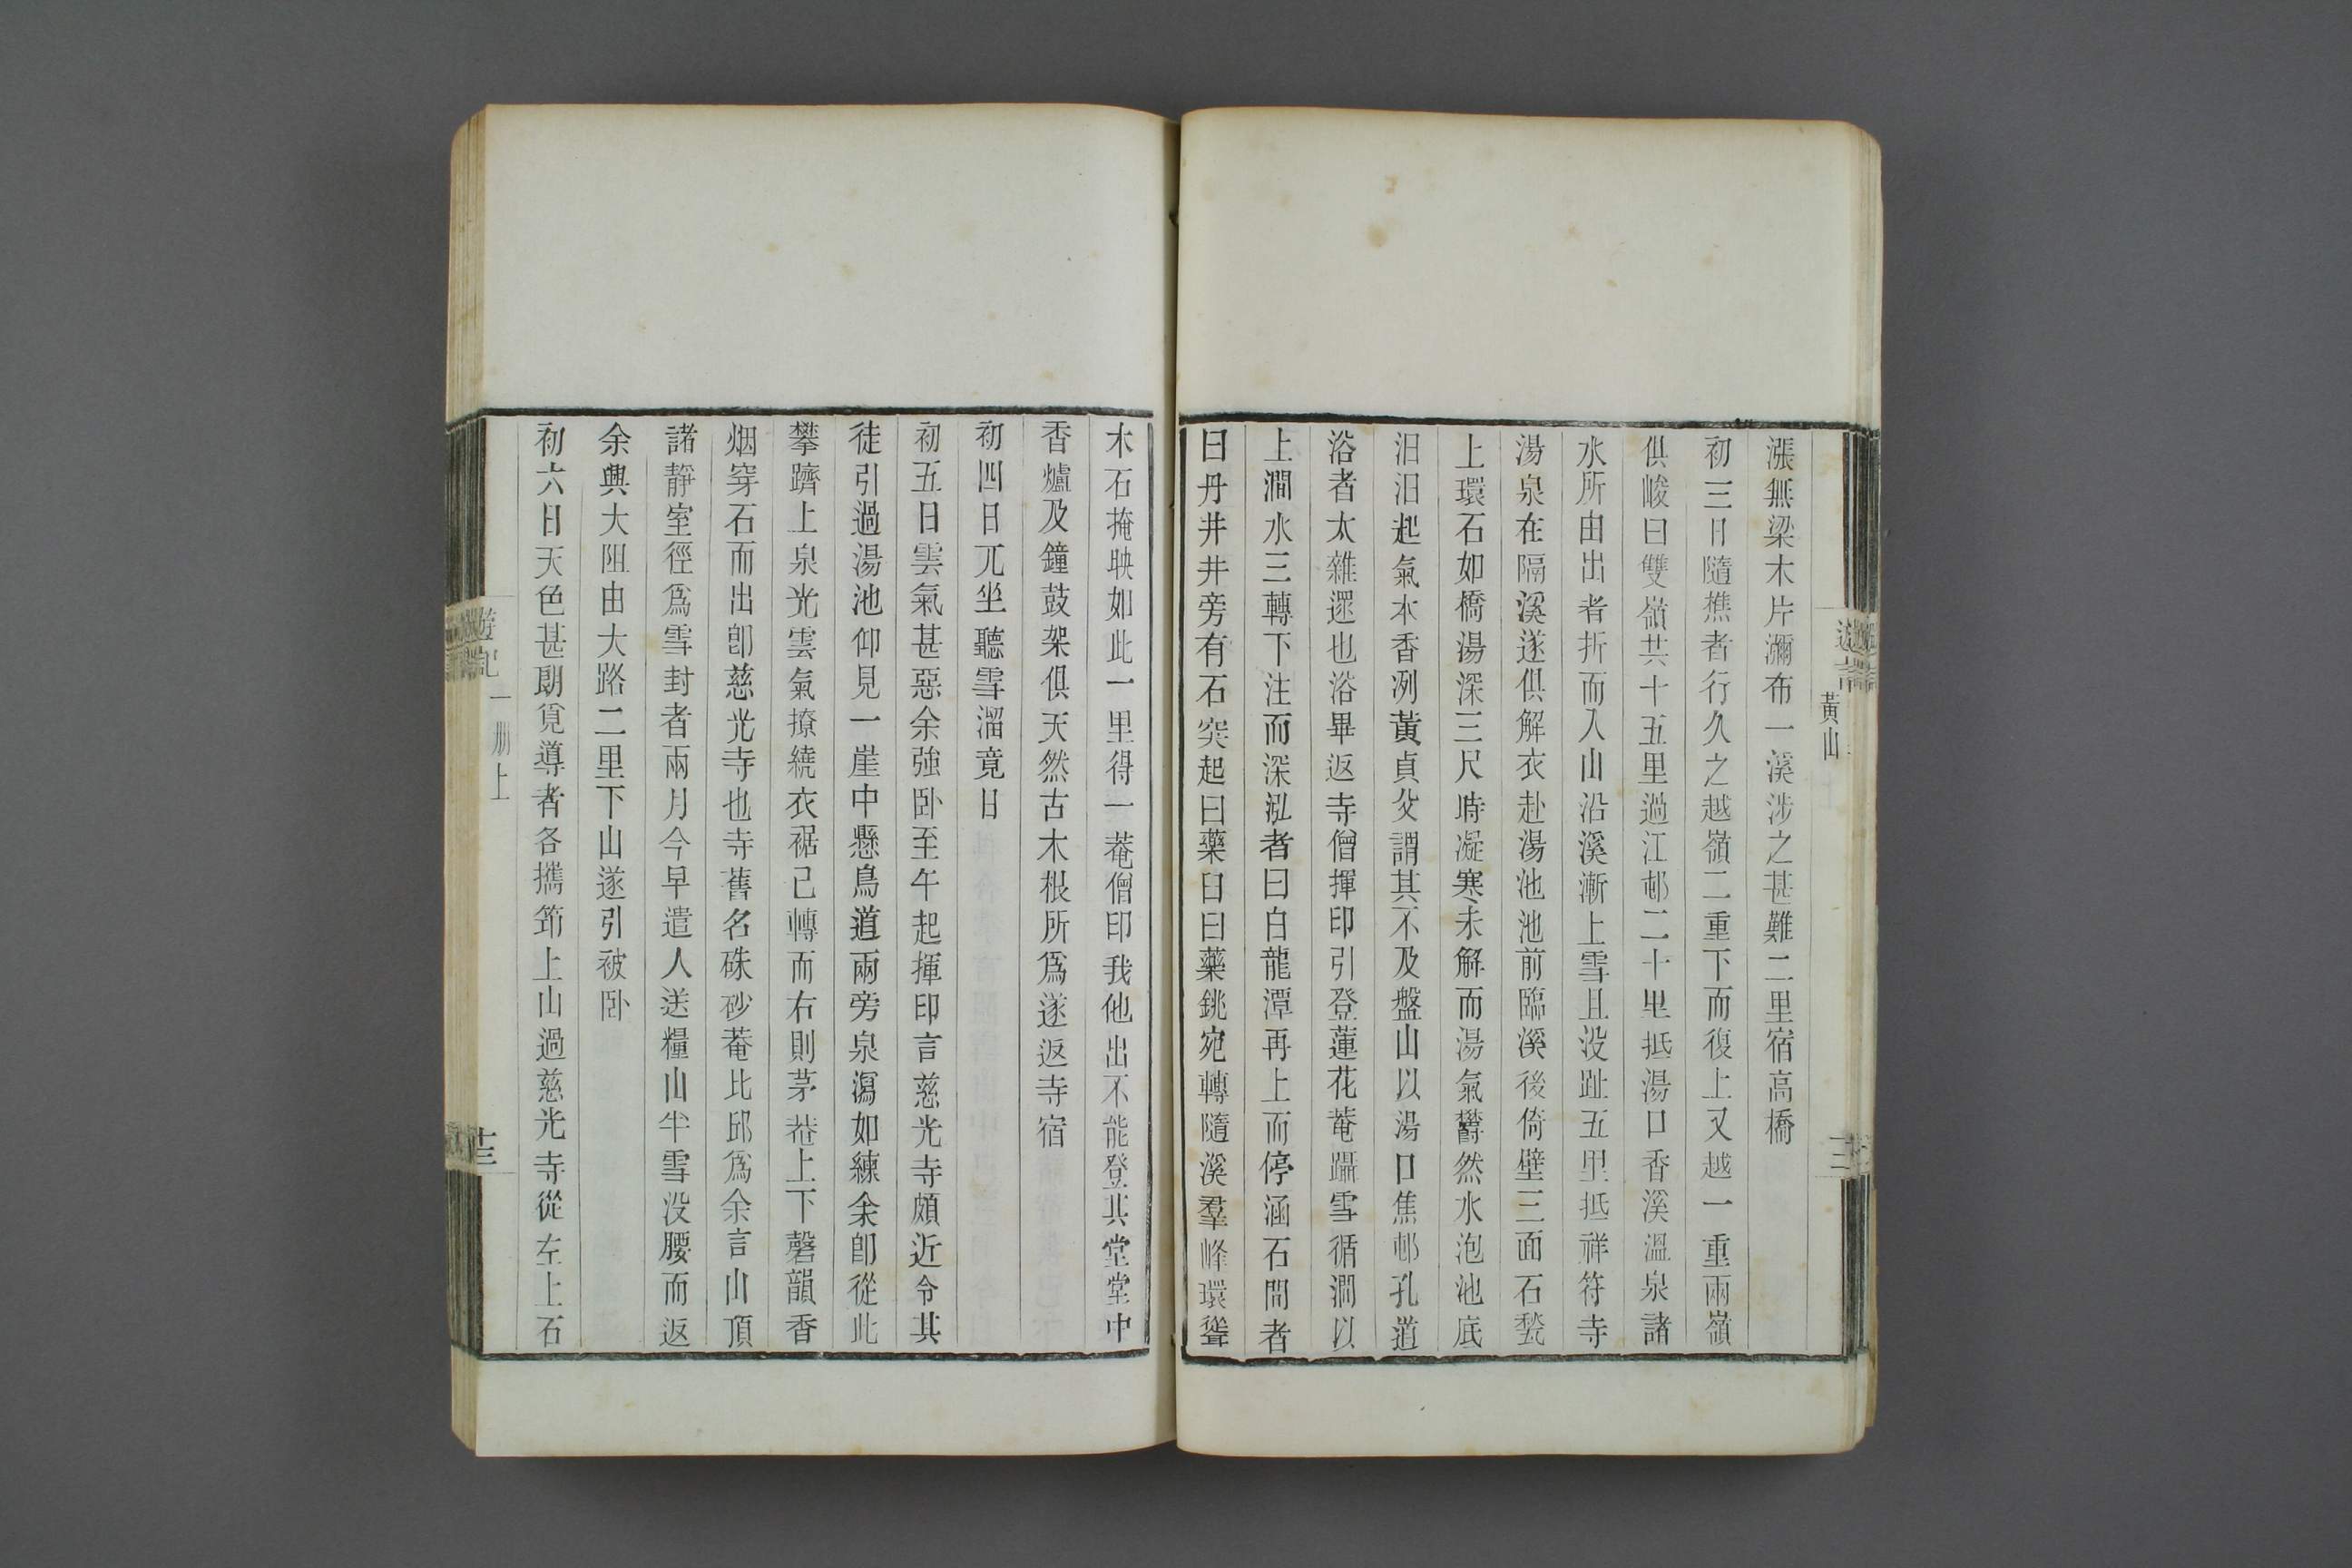 黃山
漲無梁木片瀰布一溪涉之甚難二里宿高橋
初三日隨樵者行久之越嶺二重下而復上又越一重兩嶺
俱峻曰雙嶺共十五里過江邨二十里抵湯口香溪溫泉諸
水所由出者折而入山沿溪漸上雪且没趾五里抵祥符寺
湯泉在隔溪遂俱解衣赴湯池池前臨溪後倚壁三面石甃
上環石如橋湯深三尺時凝寒未解而湯氣鬱然水泡池底
汩汩起氣本香冽黃貞父謂其不及盤山以湯口焦邨孔道
浴者太雜遝也浴畢返寺僧揮印引登蓮花菴躡雪循澗以
上澗水三轉下注而深泓者曰白龍潭再上而停涵石間者
曰丹井井旁有石突起曰藥臼曰藥銚宛轉隨溪羣峰環聳
木石掩映如此一里得一菴僧印我他出不能登其堂堂中
香爐及鐘鼓架俱天然古木根所爲遂返寺宿
初四日兀坐聽雪溜竟日
初五日雲氣甚惡余強卧至午起揮印言慈光寺頗近令其
徒引過湯池仰見一崖中懸鳥道兩旁泉瀉如練余卽從此
攀躋上泉光雲氣撩繞衣裾已轉而右則茅菴上下磬韻香
烟穿石而出卽慈光寺也寺舊名硃砂菴比邱爲余言山頂
諸靜室徑爲雪封者兩月今早遣人送糧山半雪没腰而返
余興大阻由大路二里下山遂引被卧
初六日天色甚朗覓導者各攜笻上山過慈光寺從左上石
遊記一册上
十三